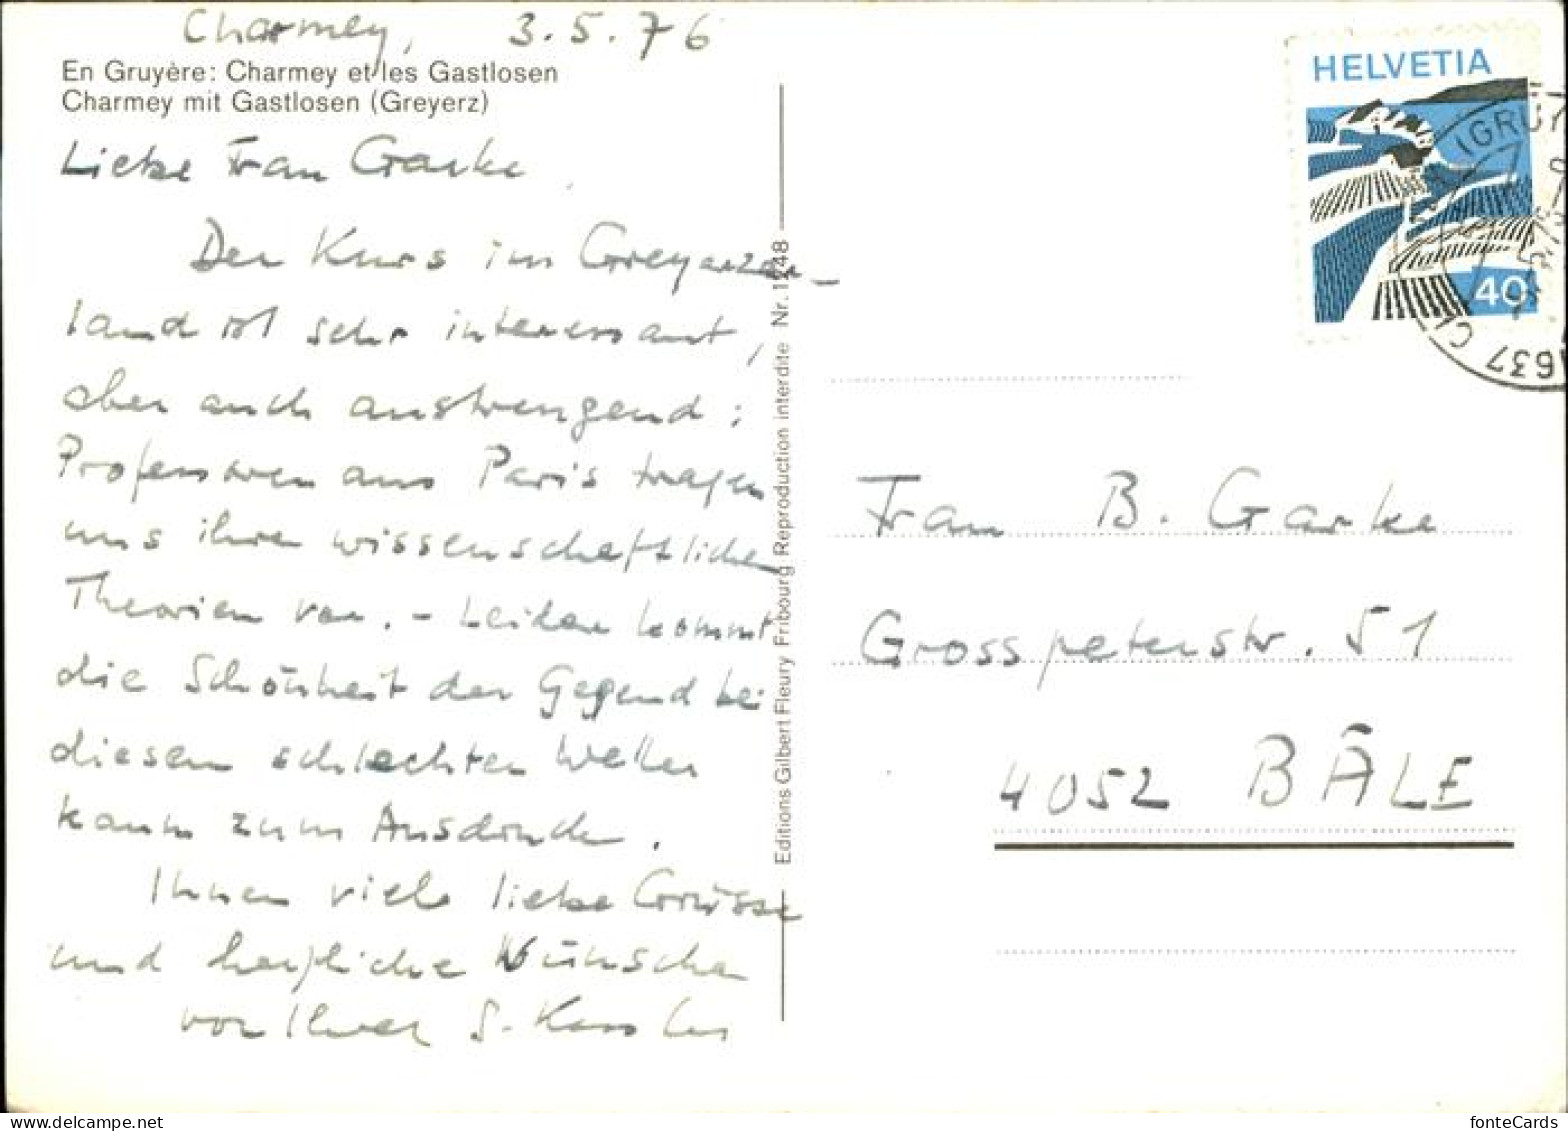 Charmey, 3.5.76
En Gruyère: Charmey et les Gastlosen
Charmey mit Gastlosen (Greyerz)
Liebe Frau Garke
Der Kurs im Greyerzer-
land ist sehr interessant,
aber auch anstrengend:
Professoren aus Paris tragen
uns ihre wissenschaftlichen
Theorien vor. - Leider kommt
die Schönheit der Gegend bei
diesem schlechten Wetter
kaum zum Ausdruck.
Ihnen viele liebe Grüsse
und herzliche Wünsche
von Ihrer S.
Editions Gilbert Fleury Fribourg Reproduction interdite Nr. 1248
HELVETIA
40
1637
Frau B. Garke
Grosspeterstr. 51
4052 BÂLE
fonteCards